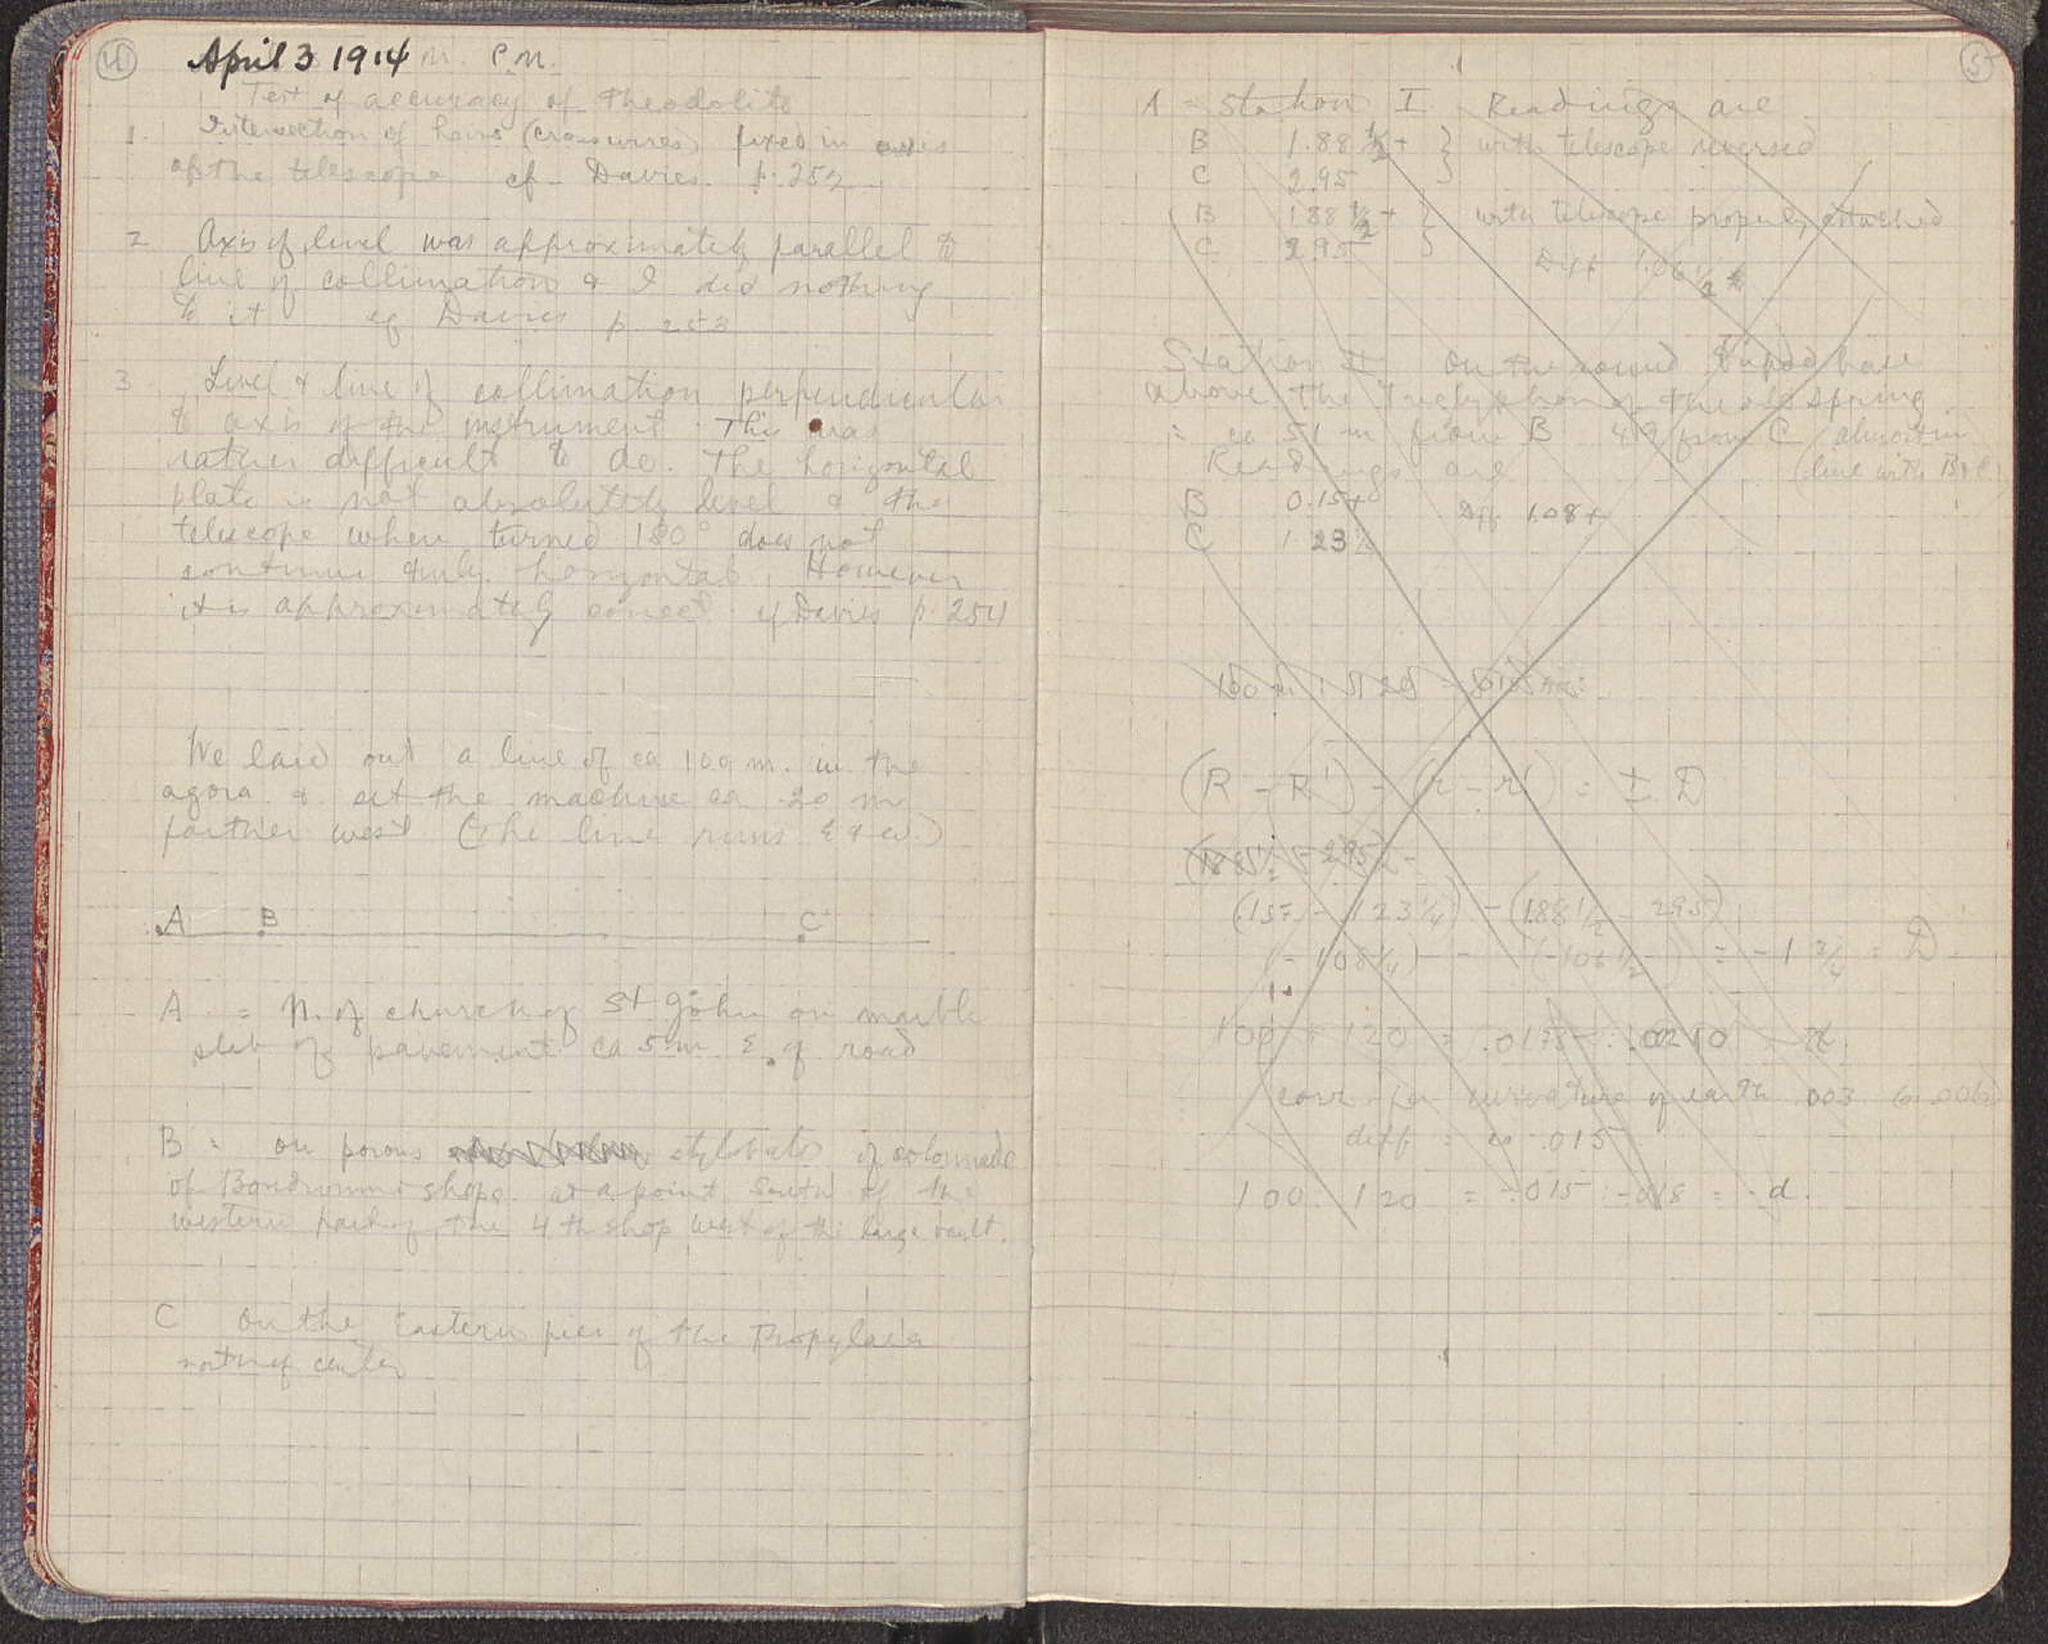 4
April 3 1914 P.M.
Test of accuracy of Theodolite
1. Intersection of hairs (crosswires) fixed in axis
of the telescope cf. Davies. p. 252
2 Axis of level was approximately parallel to
line of collimation & I did nothing
to it cf Davies p 253
3 Level & line of collimation perpendicular
to axis of the instrument. This was
rather difficult to do. The horizontal
plate is not absolutely level & the
telescope when turned 180° does not
continue truly horizontal. However
it is approximately correct. cf Davies p. 254
We laid out a line of ca 100 m. in the
agora & set the machine ca 20 m
farther west (the line runs E & W.)
A B C
A = N. of church of St John on marble
slab of pavement ca 5 m E. of road
B = on poros stylobate of colonnade
of Boudroumi shops at a point South of the
western part of the 4th shop west of the large vault.
C On the Eastern pier of the Propylaea
north of center
5
A = Station I Readings are
B 1.88 1/2 + } with telescope reversed
C 2.95 }
B 1.88 1/2 + } with telescope properly attached
C 2.95 }
Diff 1.06 1/2
Station II On the round tripod base
above the Triglyphon of the old spring
= ca 51 m from B 49 from C (almost in
Readings are (line with B & C)
B 0.15+ Diff 1.08+
C 1 23 1/4
(R - R') - (r - r') = ± D
(.15+ - 1 23 1/4) - (1.88 1/2 - 295)
(- 1 08 1/4) - (-106 1/2) = - 1 3/4 = D
100 : 120 = .0175 : .0210 d
corr. for curvature of earth .003
diff = ca .015
100 : 120 = -.015 : -.018 = -d.